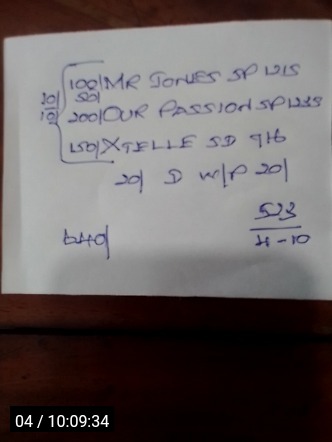 100/ MR JONES SP 1215
50/
20/
10/
200/ OUR PASSION SP 1235
150/ XTELLE SD 916
20/ D W/P 20/
523
640/
4-10
04 / 10:09:34